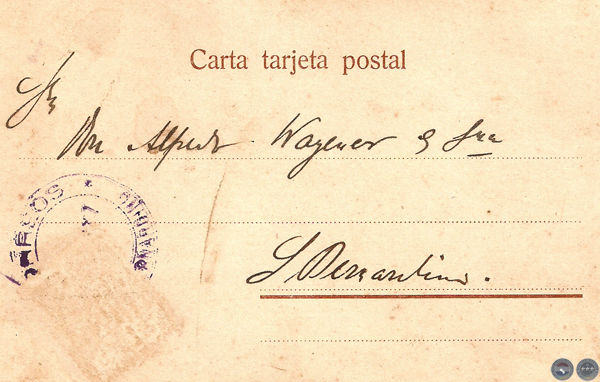 Carta tarjeta postal
Sr
Don Alfredo Wagener & Sra
S Bernardino.